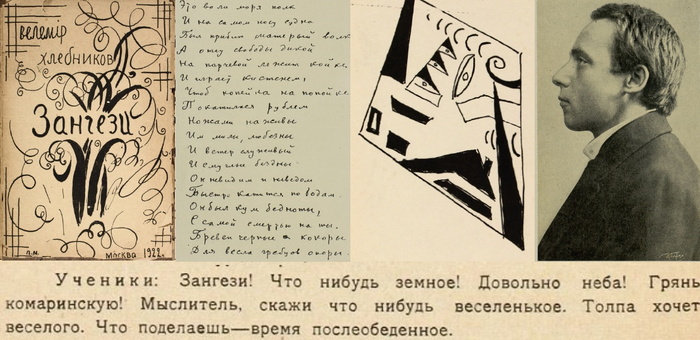 велемір
хлебников
Зангези
п.м. москва 1922.
Это воли моря полк
И на самом носу судна
Был прибит матерый волк
А отцу свободы дикой
На парчевой лежать койке
И играет кистенем,
Чтоб копейка на попойке
Покатилася рублем
Ножами наживы
Им милы, любезны
И ветер служивый
И смуглые бездны
Он невидим и неведом
Быстро катится по водам.
Он был кум бедноты,
С самой смертью на ты.
Бревен черные кокоры
Для весла гребцов опоры
Ученики: Зангези! Что нибудь земное! Довольно неба! Грянь
комаринскую! Мыслитель, скажи что нибудь веселенькое. Толпа хочет
веселого. Что поделаешь—время послеобеденное.